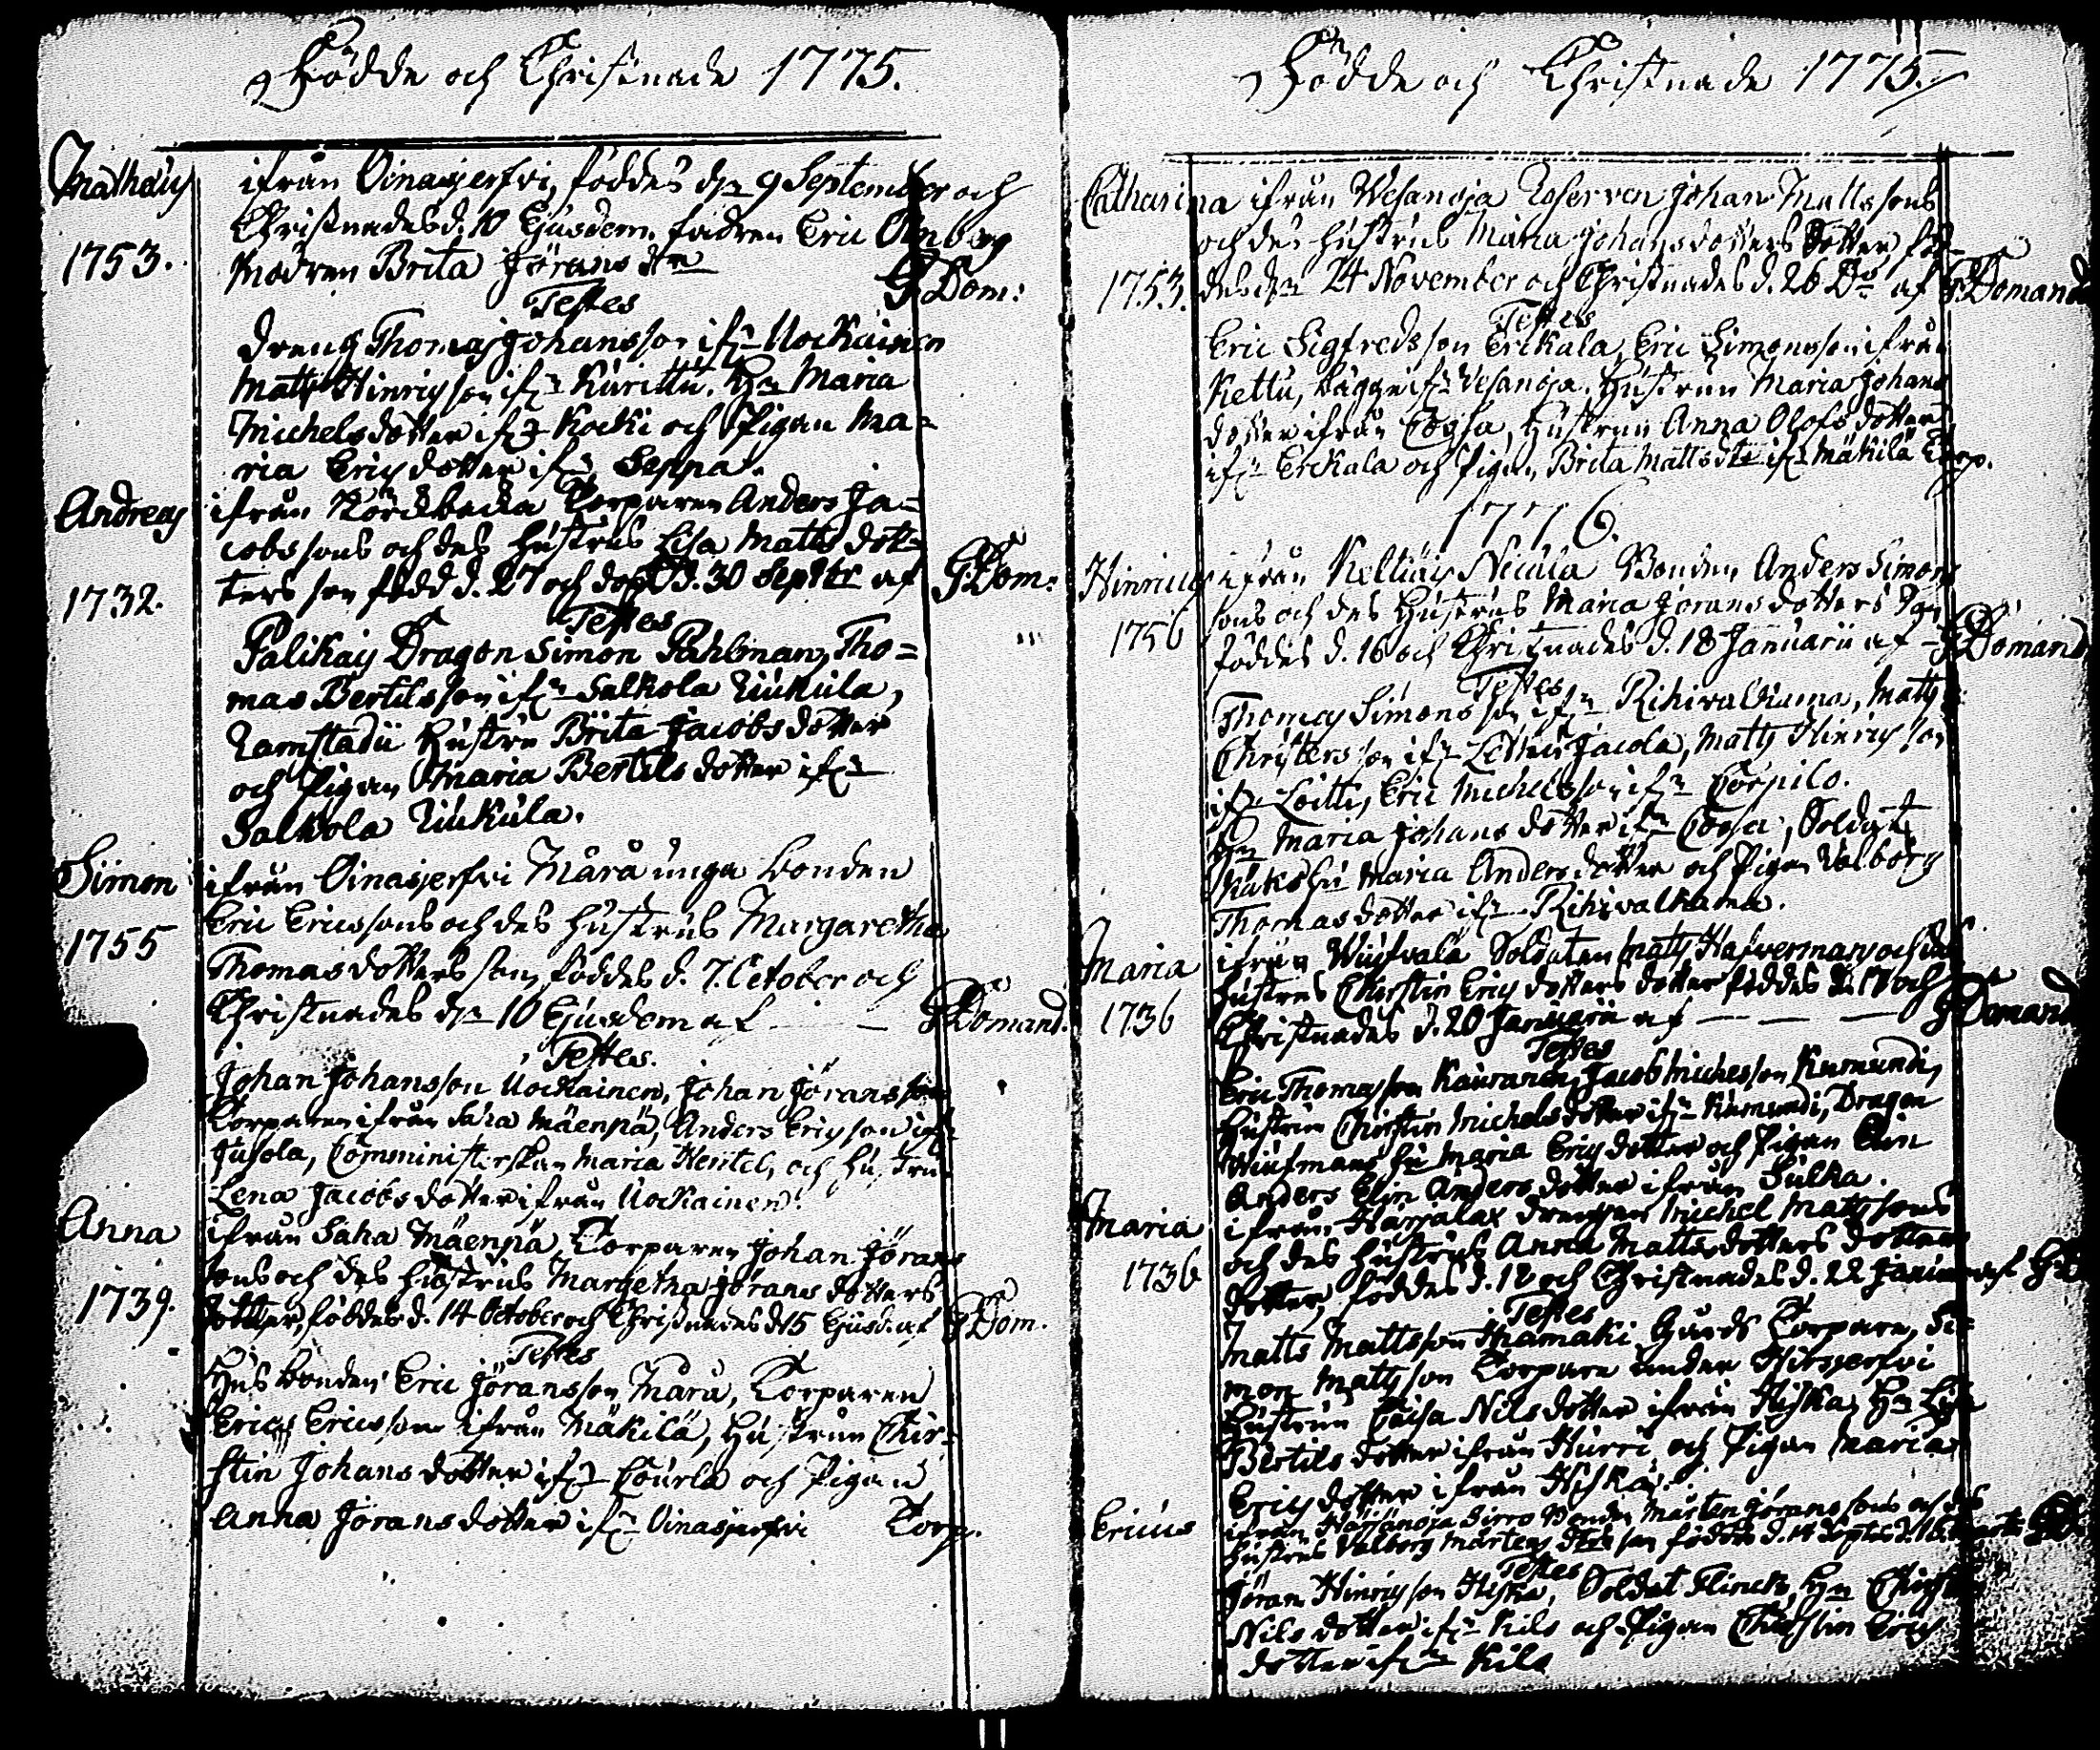 Födde och Christnade 1775.
Mathæus ifrån Oinasjerfvi, föddes dn 9 September och
Christnades d. 10 Ejusdem. fadren Eric
1753. Modren Brita Jörans dtr G. Dom:
Testes
Dreng Thomas Johansson ifrn Uockainen
Matts Hinricsson ifrn Kurittu. Hn Maria
Michelsdotter ifrn Kocki och Pigan Ma=
ria Ericsdotter ifrn Seppä.
Andreas ifrån Torparen Anders Ja=
cobssons och des Hustrus Lisa Matts dot=
1732. ters son född d. 27 och döpt d. 30 Septbr af G. Dom:
Testes
Palikais Dragon Simon Pahlman, Tho=
mas Bertilsson ifrn Salkola Uukula,
Hustru Brita Jacobsdotter
och Pigan Maria Bertils dotter ifrn
Salkola Uukula.
Simon ifrån Oinasjerfvi Mårå unga bonden
Eric Ericssons och des Hustrus Margaretha
1755 Thomasdotters son, föddes d. 7. October och
Christnades dn 10 Ejusdem af — G. Domand.
Testes.
Johan Johansson Uockainen, Johan Jöransson
Torparen ifrån Saha Mäenpä, Anders Ericsson ifrn
Jusola, Comministerskan Maria Hentel, och Hustru
Lena Jacobsdotter ifrån Uockainen.
Anna ifrån Saha Mäenpä Torparen Johan Jörans
sons och des Hustrus Margetha Jörans dotters
1739. dotter, föddes d. 14 October och Christnades d. 15 Ejusd. af G. Dom.
Testes
Husbonden Eric Jöransson Mårå, Torparen
Erics Ericsson ifrån Mäkilä, Hustrun Chir=
stin Johansdotter ifrn Courla och Pigan
Anna Jöransdotter ifrn Oinasjerfvi Torp.
Födde och Christnade 1775.
Catharina ifrån Wesanoja Johan Mattssons
och des Hustrus Maria Johansdotters Dotter föd=
1753. des dn 24 November och Christnades d. 26 Do af G. Domand
Testes
Eric Sigfredsson Erckala, Eric Simonsson ifrån
Kettu, bägge ifrn Vesanoja. Hustrun Maria Johans
dotter ifrån Cogsa, Hustrun Anna Olofsdotter
ifrn Erckala och Pigan Brita Mattsdtr ifrn Mäkilä Torp.
1776.
Hinricus ifrån Keltiäis Nicula Bonden Anders Simons
sons och des Hustrus Maria Jöransdotters Son
1756 föddes d. 16 och Christnades d. 18 Januarii af G. Domand.
Testes
Thomas Simonsson ifrn Rihivalkama, Matts
Christersson ifrn Jacola, Matts Hinricsson
ifrn Loitti, Eric Michelsson ifrn Corpilo.
Hn Maria Johansdotter ifrn Cogsa, Soldat
hu Maria Andersdotter och Pigan Valborg
Thomasdotter ifrn Rihivalkama.
Maria ifrån Wiufvala Soldaten Matts Hafverman och des
Hustrus Chirstin Erics dotters dotter föddes d. 17 och
1736 Christnades d. 20 Januarii af — — — G. Domand
Testes
Eric Thomasson Kauranen, Jacob Michelsson Kumundi,
Hustrun Chirstin Michelsdotter ifrn Kumundi, Dragon
Wiufmans hu Maria Ericsdotter och Pigan Elin
Anders Elin Andersdotter ifrån Sulka.
Maria ifrån Harjalax drengen Michel Mattssons
och des Hustrus Anna Mattsdotters dotter
1736 dotter, föddes d. 18 och Christnades d. 22 Januar af G. D
Testes
Matts Mattsson Gårds Torpare, Si=
mon Mattsson Torpare under Hirsjerfvi
Hustrun Caisa Nilsdotter ifrån Hiska, Hn Lisa
Bertils dotter ifrån Hurri och Pigan Maria
Ericsdotter ifrån Hiska.
Ericus ifrån Sirro Bonden Mårten Jöranssons och des
Hustrus Valborg Mårtens dtrs son föddes d. 14
Testes
Jöran Hinricsson Hiska, Soldat Flinck, Hn Chirstin
Nilsdotter ifrn Kilo och Pigan Chirstin Erics
dotter ifrn Kila